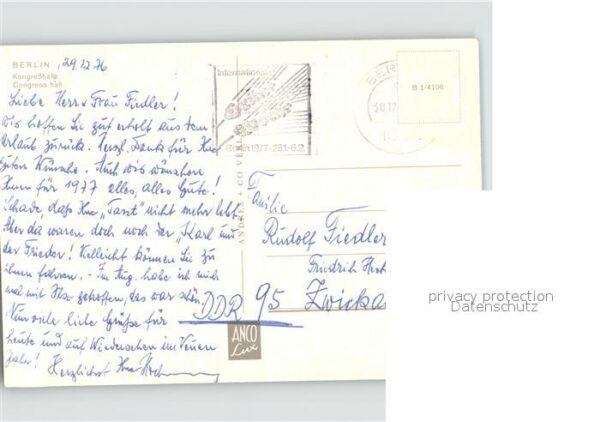 BERLIN, 29.12.76
Kongreßhalle
Congress hall
Liebe Herr u. Frau Fiedler!
Wir hoffen Sie gut erholt aus dem
Urlaub zurück. Herzl. Dank für Ihre
guten Wünsche. Auch wir wünschen
Ihnen für 1977 alles, alles Gute!
Schade, daß Ihre "Tant" nicht mehr lebt.
Aber da waren doch noch der "Karl und
der Frieder! Vielleicht können Sie zu
ihnen fahren. - Im Aug. habe ich mich
mal mit getroffen, das war schön.
Nun viele liebe Grüße für
heute und auf Wiedersehen im Neuen
Jahr! Herzlichst Ihre
Internationale
Grüne
Woche
Berlin
BERLIN
30.12
10
B 1/4106
ANDRES + CO VERLAG
Familie
Rudolf Fiedler
Friedrich
DDR 95 Zwickau
ANCO
Lux
privacy protection
Datenschutz